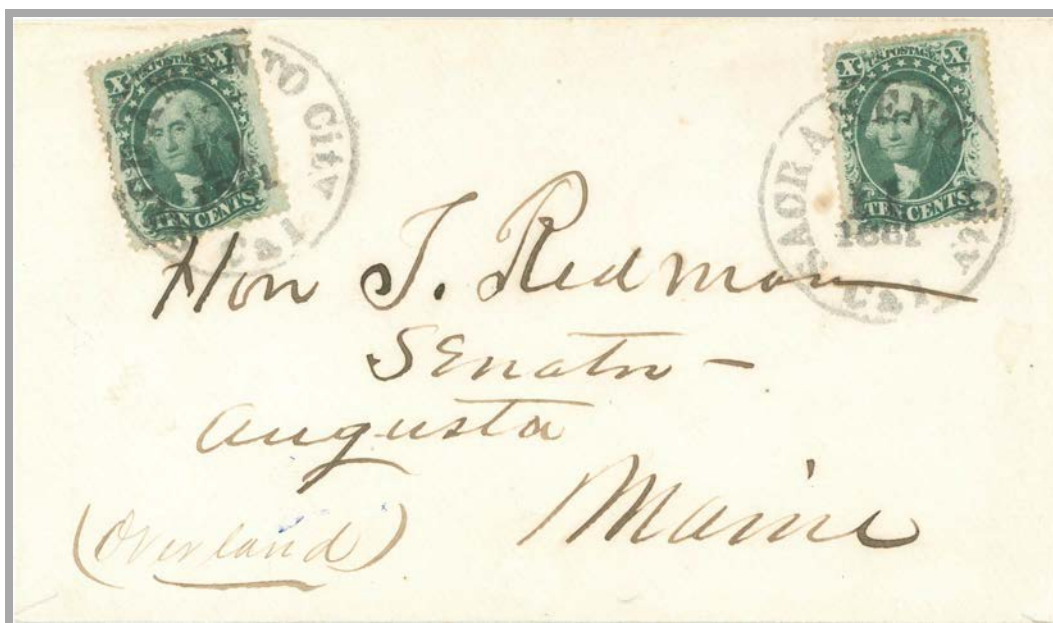 X U.S. POSTAGE X
TEN CENTS
TO City
Cal.
X U.S. POSTAGE X
TEN CENTS
SACRAMENTO City
1861
Cal.
Hon J. Redman
Senator –
Augusta
Maine
(Overland)